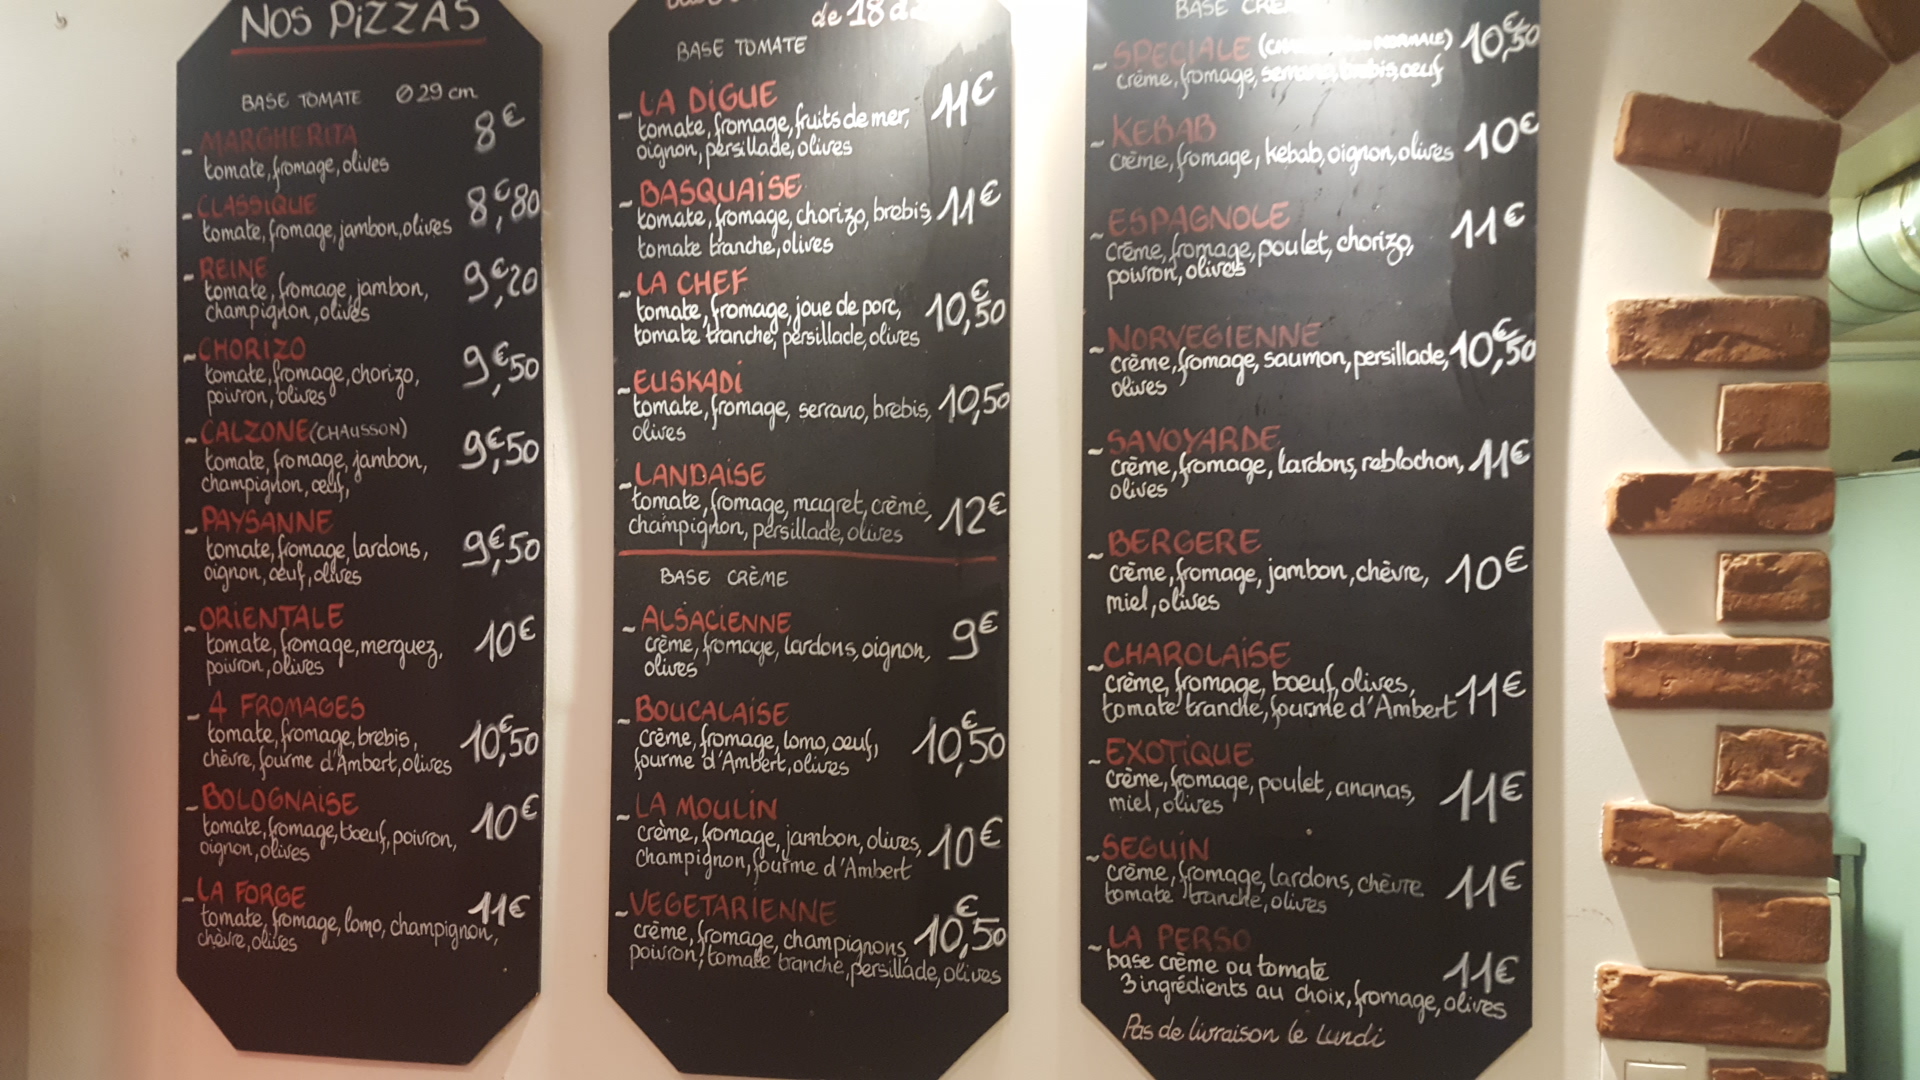 NOS PiZZAS
BASE TOMATE Ø 29 cm
- MARGHERITA 8€
tomate, fromage, olives
- CLASSIQUE 8€,80
tomate, fromage, jambon, olives
- REINE 9€,20
tomate, fromage, jambon,
champignon, olives
- CHORIZO 9€,50
tomate, fromage, chorizo,
poivron, olives
- CALZONE (CHAUSSON) 9€,50
tomate, fromage, jambon,
champignon, œuf,
- PAYSANNE 9€,50
tomate, fromage, lardons,
oignon, œuf, olives
- ORiENTALE 10€
tomate, fromage, merguez,
poivron, olives
- 4 FROMAGES 10€,50
tomate, fromage, brebis,
chèvre, fourme d'Ambert, olives
- BOLOGNAiSE 10€
tomate, fromage, bœuf, poivron,
oignon, olives
- LA FORGE 11€
tomate, fromage, lomo, champignon,
chèvre, olives
de 18
BASE TOMATE
- LA DiGUE 11€
tomate, fromage, fruits de mer,
oignon, persillade, olives
- BASQUAiSE 11€
tomate, fromage, chorizo, brebis,
tomate tranche, olives
- LA CHEF 10€,50
tomate, fromage, joue de porc,
tomate tranche, persillade, olives
- EUSKADi 10,50
tomate, fromage, serrano, brebis,
olives
- LANDAiSE 12€
tomate, fromage, magret, crème,
champignon, persillade, olives
BASE CRÈME
- ALSACiENNE 9€
crème, fromage, lardons, oignon,
olives
- BOUCALAiSE 10€,50
crème, fromage, lomo, oeuf,
fourme d'Ambert, olives
- LA MOULiN 10€
crème, fromage, jambon, olives,
champignon, fourme d'Ambert
- VEGETARiENNE 10€,50
crème, fromage, champignons
poivron, tomate tranche, persillade, olives
BASE
- SPECiALE 10€,50
crème, fromage, serrano, brebis, œuf
- KEBAB 10€
crème, fromage, kebab, oignon, olives
- ESPAGNOLE 11€
crème, fromage, poulet, chorizo,
poivron, olives
- NORVEGiENNE 10€,50
crème, fromage, saumon, persillade,
olives
- SAVOYARDE 11€
crème, fromage, lardons, reblochon,
olives
- BERGERE 10€
crème, fromage, jambon, chèvre,
miel, olives
- CHAROLAiSE 11€
crème, fromage, boeuf, olives,
tomate tranche, fourme d'Ambert
- EXOTiQUE 11€
crème, fromage, poulet, ananas,
miel, olives
- SEGUiN 11€
crème, fromage, lardons, chèvre
tomate tranche, olives
- LA PERSO 11€
base crème ou tomate
3 ingrédients au choix, fromage, olives
Pas de livraison le Lundi